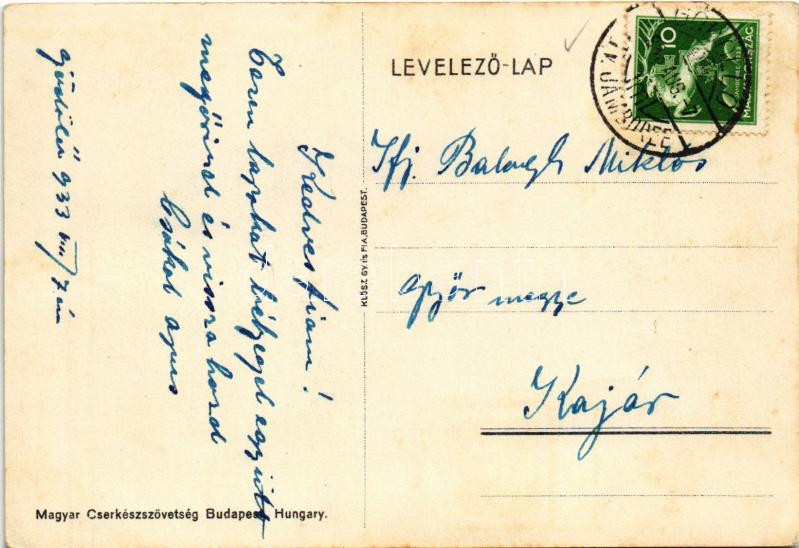 LEVELEZŐ-LAP
10
MAGYARORSZÁG
JAMBOREE
Ifj. Balogh Miklós
Győr megye
Kajár
Kedves fiam!
Ezen lapokat bélyeggel együtt
megőrized és vissza hozod
Csókol apus
Gödöllő 933 VIII/7.én
KLÖSZ GY. ÉS FIA, BUDAPEST.
Magyar Cserkészszövetség Budapest, Hungary.